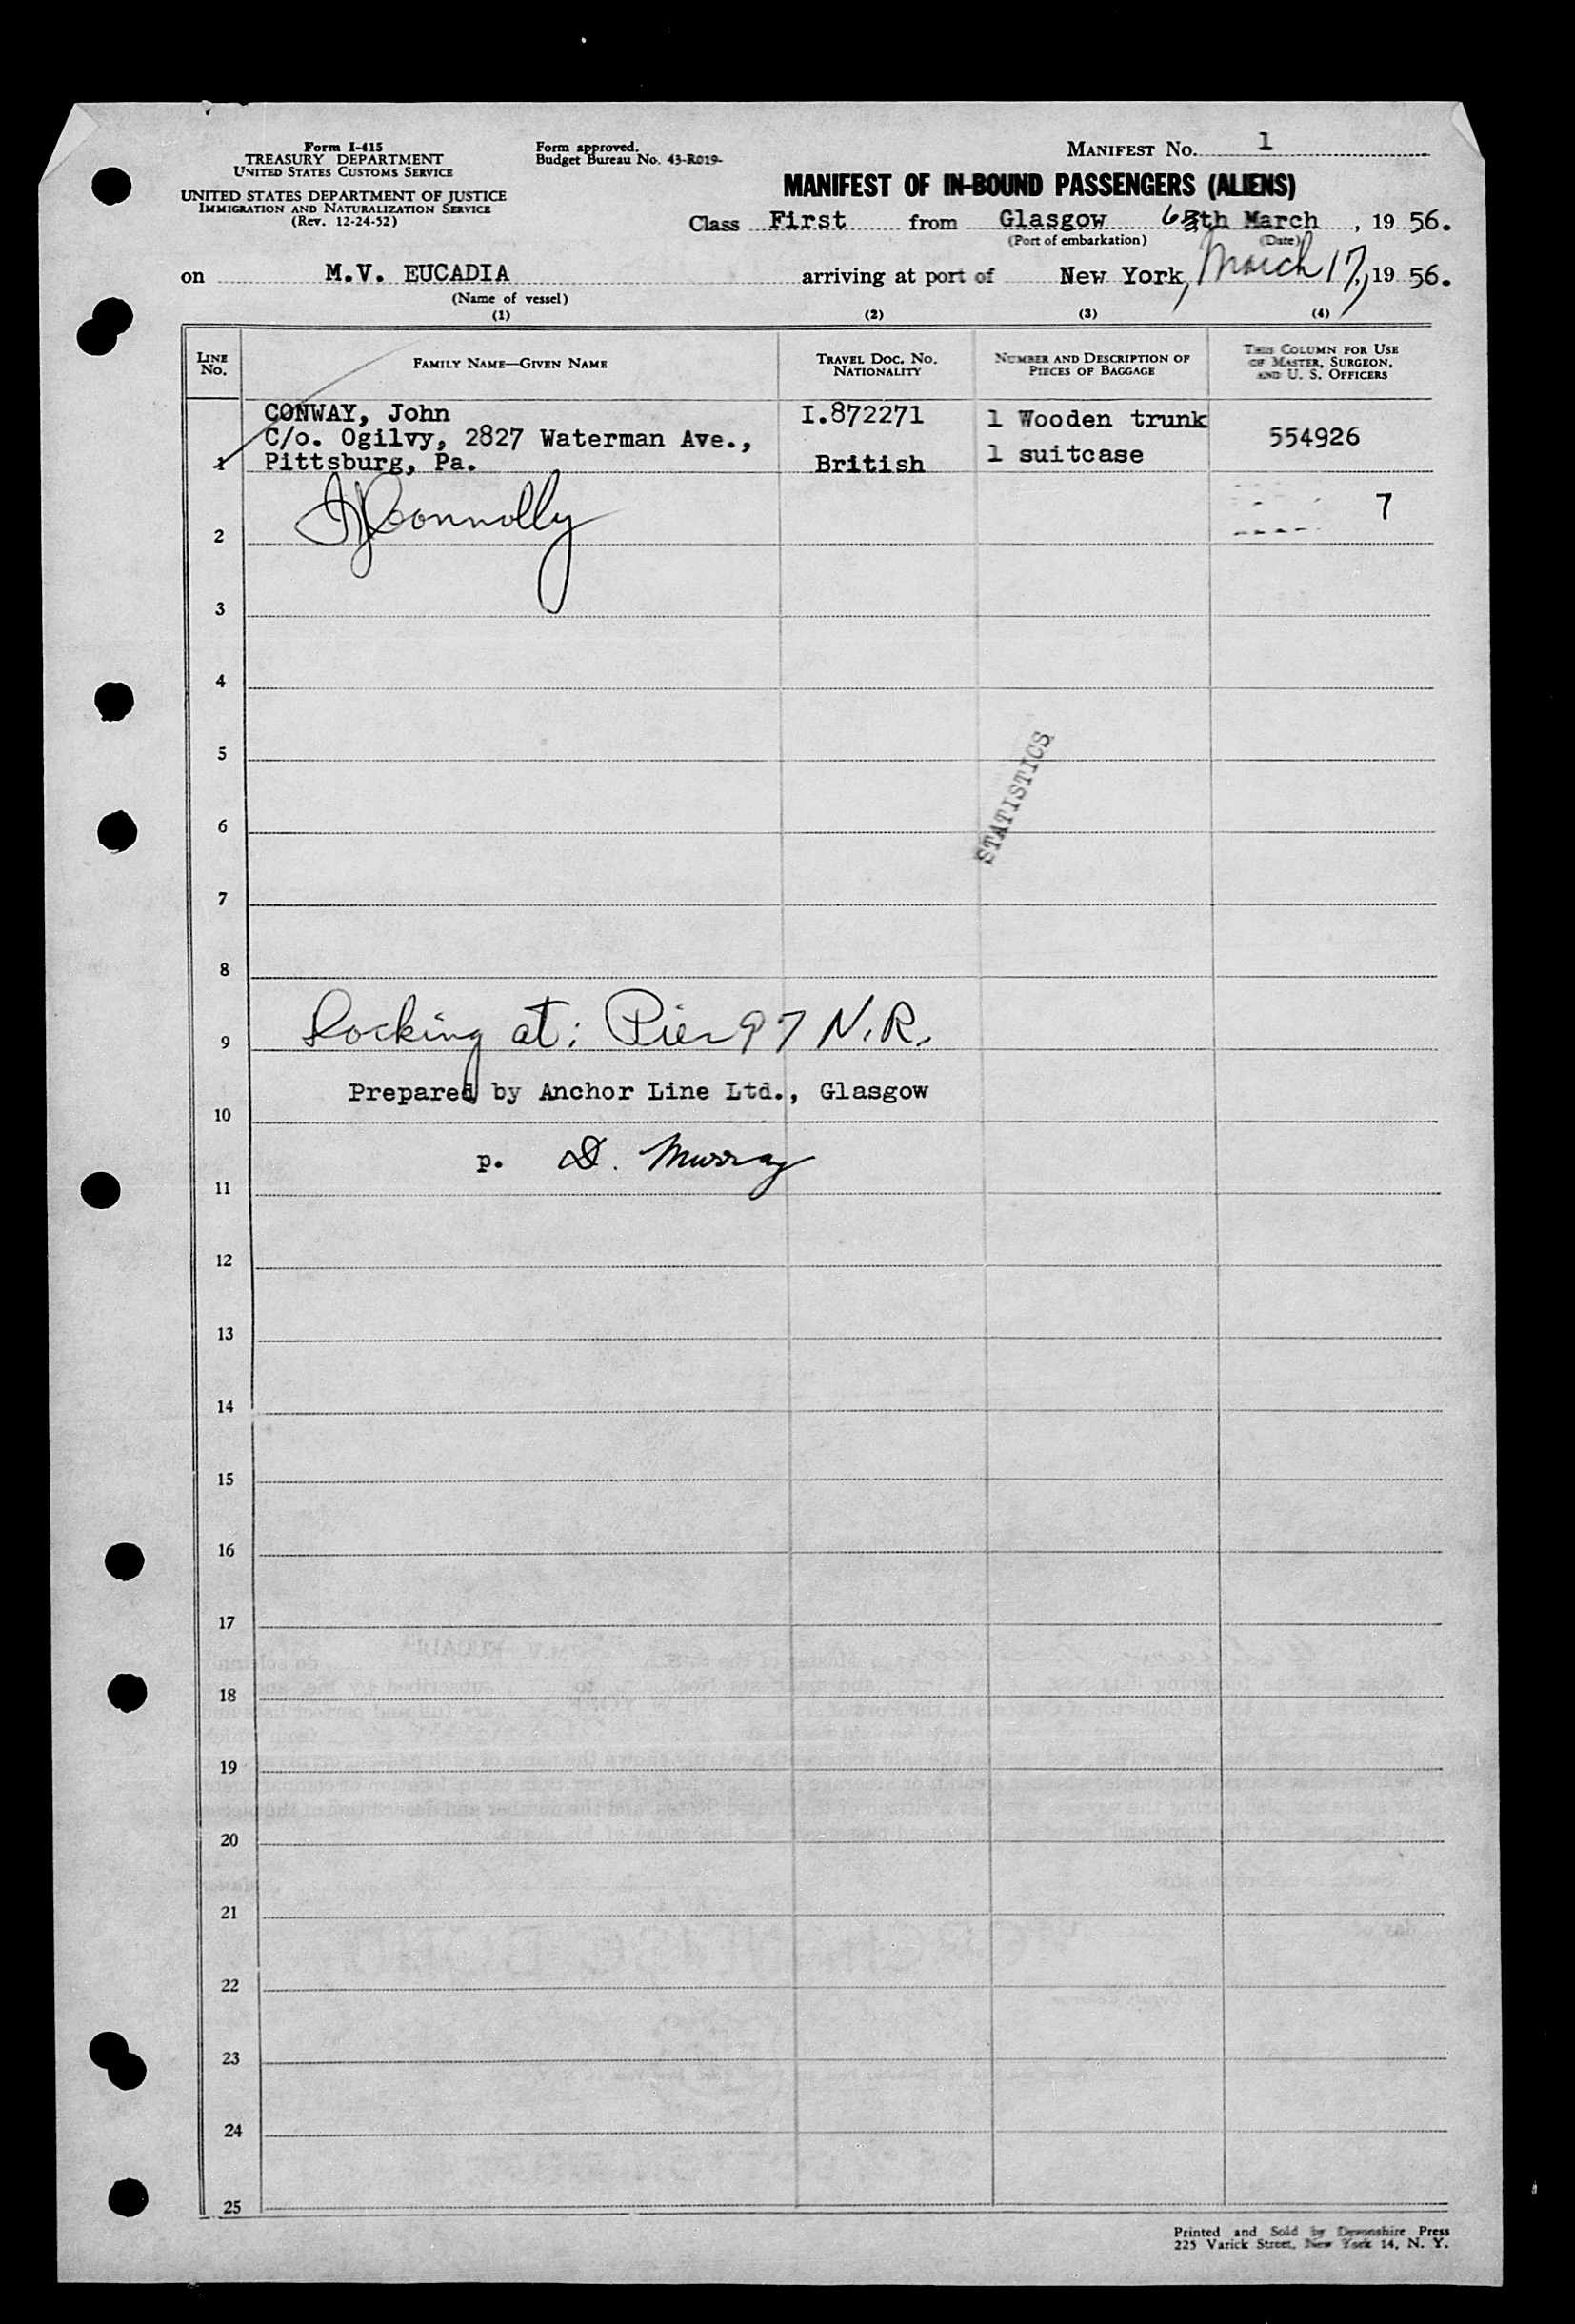 Form I-415
TREASURY DEPARTMENT
UNITED STATES CUSTOMS SERVICE
UNITED STATES DEPARTMENT OF JUSTICE
IMMIGRATION AND NATURALIZATION SERVICE
(Rev. 12-24-52)
Form approved.
Budget Bureau No. 43-R019-
MANIFEST No. 1
MANIFEST OF IN-BOUND PASSENGERS (ALIENS)
Class First from Glasgow 6th March, 19 56.
(Port of embarkation) (Date)
on M.V. EUCADIA arriving at port of New York, March 17, 19 56.
(Name of vessel)
(1) (2) (3) (4)
LINE No. FAMILY NAME—GIVEN NAME TRAVEL DOC. NO. NATIONALITY NUMBER AND DESCRIPTION OF PIECES OF BAGGAGE THIS COLUMN FOR USE OF MASTER, SURGEON, AND U. S. OFFICERS
CONWAY, John I.872271 1 Wooden trunk
C/o. Ogilvy, 2827 Waterman Ave., 554926
1 Pittsburg, Pa. British 1 suitcase
2 Connolly 7
3
4
5
STATISTICS
6
7
8
9 Docking at: Pier 97 N.R.
Prepared by Anchor Line Ltd., Glasgow
10
p. D. Murray
11
12
13
14
15
16
17
18
19
20
21
22
23
24
25
Printed and Sold by Devonshire Press
225 Varick Street, New York 14, N. Y.